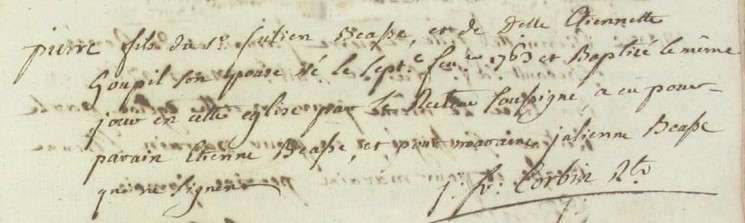 pierre fils du Sr. Julien Beasse, et de Delle Etiennette
Goupil son epouse né le sept.e fev.er 1763 et Baptisé le même
jour en cette eglise par le Recteur soussigné, a eu pour
parain Etienne Beasse, et pour maraine julienne Beasse
qui ne signent
Corbin Rtr